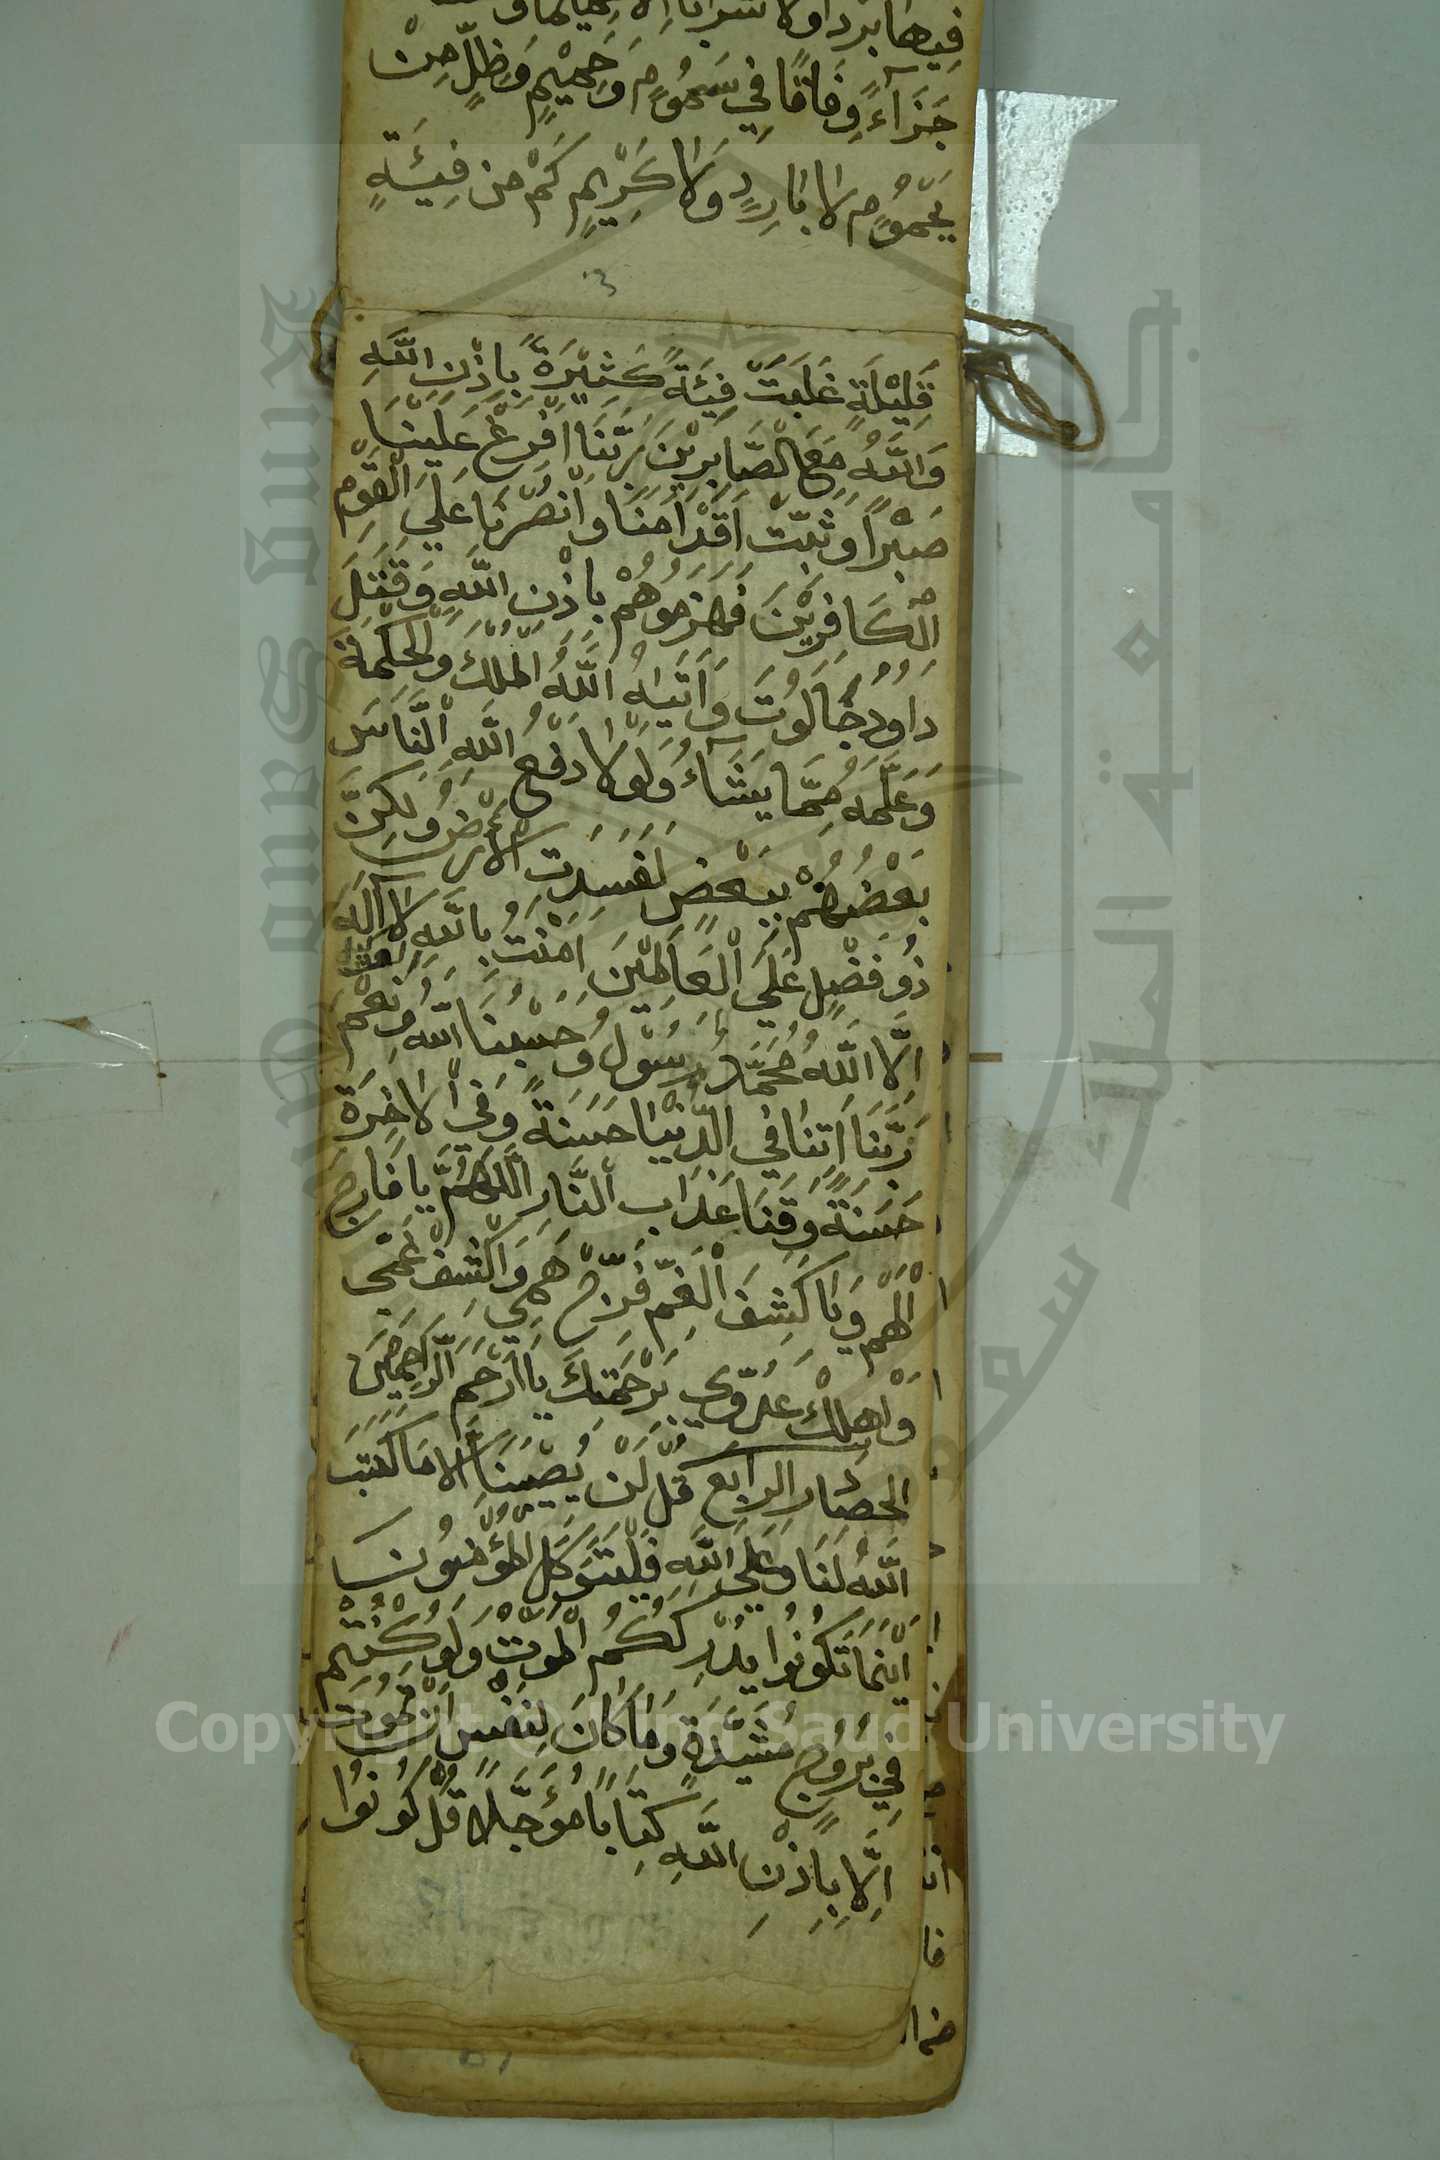 فِيهَا بَرْدًا وَلَا شَرَابًا اِلَّا
جَزَآءً وِفَاقًا فِي سَمُوُمٍ وَحَمِيْمٍ وَظِلٍّ مِنْ
يَحْمُوُمٍ لَا بَارِدٍ وَلَا كَرِيْمٍ كَمْ مِن فِيَئةٍ
٣
قَلِيْلَةٍ غَلَبَتْ فِيَئةً كَثِيْرَةً بِاِذْنِ اللَّهِ
وَاللَّهُ مَعَ الصَّابِرِيْنَ رَبَّنَا اَفْرِغْ عَلَيْنَا
صَبْرًا وَثَبِّتْ اَقْدَامَنَا وَانْصُرْنَا عَلَي الْقَوْمِ
الْكَافِرِيْنَ فَهَزَمُوهُمْ بِاِذْنِ اللَّهِ وَقَتَلَ
دَاوُدُ جَالُوْتَ وَاَتَيهُ اللَّهُ الْمُلْكَ وَالْحِكْمَةَ
وَعَلَّمَهُ مِمَّا يَشَآءُ وَلَوْلَا دَفْعُ اللَّهِ النَّاسَ
بَعْضُهُمْ بِبَعْضٍ لَفَسَدَتِ الْاَرْضُ وَلَكِنَّ
اللَّهَ
ذُو فَضْلٍ عَلَي الْعَالَمِيْنَ اَمَنْتُ بِاللَّهِ لَا اِلَهَ
اِلَّا اللَّهُ مُحَمَّدُ رَسُوْلُ وَحَسْبُنَا اللَّهُ وَنِعْمَ
رَبَّنَا اَتِنَا فِي الدُّنْيَا حَسَنَةً وَفِي الْاَخِرَةِ
حَسَنَةً وَقِنَا عَذَابَ النَّارِ اَللَّهُمَّ يَا فَارِجَ
الْهَمِّ وَيَا كَشِفَ الْغَمِّ فَرِّجْ هَمِّي وَاكْشِفْ غَمِّي
وَاهْلِكْ عَدُوِّي بِرَحْمَتِكَ يَا اَرْحَمَ الرَّاحِمِيْنَ
الحصار الرابع قُلْ لَنْ يُصِيْبَنَا اِلَّا مَا كَتَبَ
اللَّهُ لَنَا وَعَلَي اللَّهِ فَلْيَتَوَكَّلِ الْمُؤْمِنُونَ
اَيْنَمَا تَكُونُوا يُدْرِكْكُمُ الْمَوْتُ وَلَوْ كُنْتُمْ
فِي بُرُوجٍ مُشَيَّدَةٍ وَمَا كَانَ لِنَفْسٍ اَنْ تَمُوْتَ
اِلَّا بِاِذْنِ اللَّهِ كِتَابًا مُؤَجَّلًا قُلْ كُوْنُوْا
Copyright © King Saud University
King Saud University
جامعة الملك سعود